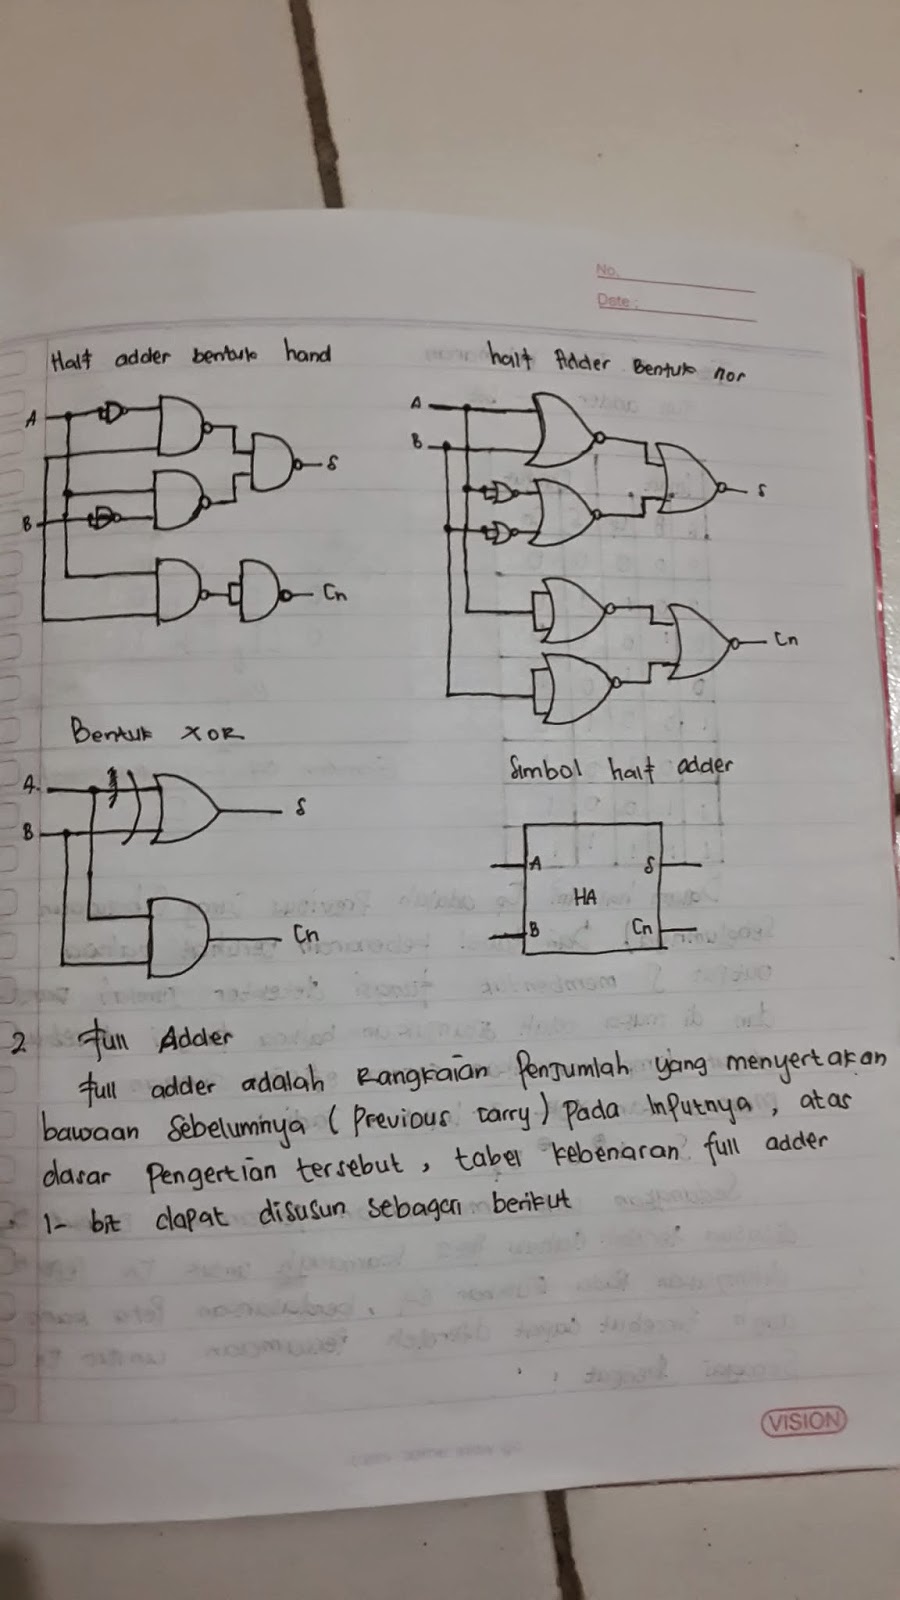 No.
Date :
Half adder bentuk hand
half Adder Bentuk nor
A
B
S
Cn
A
B
S
Cn
Bentuk XOR
A
B
S
Cn
Simbol half adder
A
S
HA
B
Cn
2 full Adder
full adder adalah Rangkaian Penjumlah yang menyertakan
bawaan Sebelumnya ( Previous carry ) pada Inputnya , atas
dasar Pengertian tersebut , tabel kebenaran full adder
1- bit dapat disusun sebagai berikut
VISION